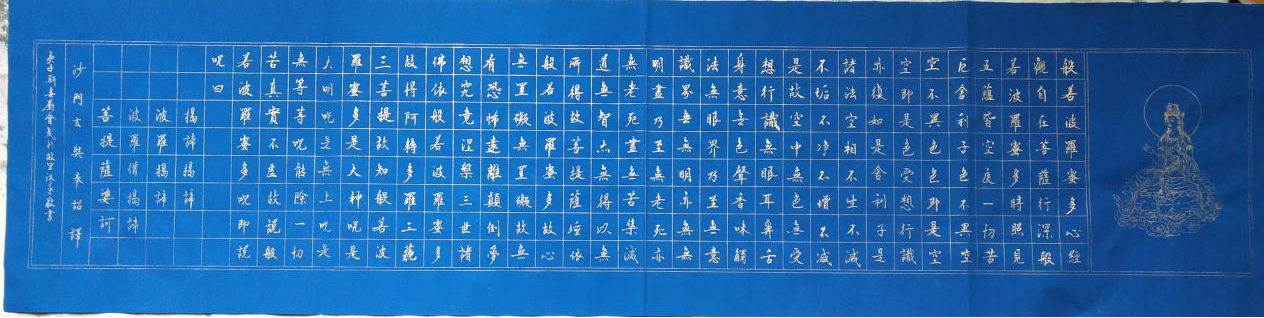 般若波羅蜜多心經
觀自在菩薩行深般
若波羅蜜多時照見
五蘊皆空度一切苦
厄舍利子色不異空
空不異色色即是空
空即是色受想行識
亦復如是舍利子是
諸法空相不生不滅
不垢不淨不增不減
是故空中無色無受
想行識無眼耳鼻舌
身意無色聲香味觸
法無眼界乃至無意
識界無無明亦無無
明盡乃至無老死亦
無老死盡無苦集滅
道無智亦無得以無
所得故菩提薩埵依
般若波羅蜜多故心
無罣礙無罣礙故無
有恐怖遠離顛倒夢
想究竟涅槃三世諸
佛依般若波羅蜜多
故得阿耨多羅三藐
三菩提故知般若波
羅蜜多是大神呪是
大明呪是無上呪是
無等等呪能除一切
苦真實不虛故說般
若波羅蜜多呪即說
呪曰
揭諦揭諦
波羅揭諦
波羅僧揭諦
菩提薩婆訶
沙門玄奘奉詔譯
庚子新春